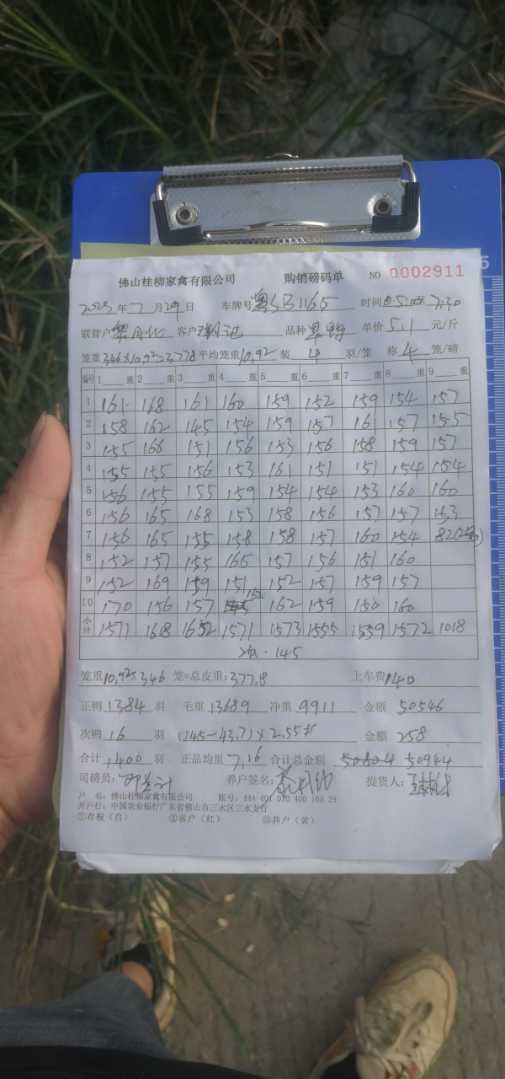 佛山桂柳家禽有限公司 购销磅码单 NO 0002911
2023年7月29日 车牌号 时间
联营户 客户 品种 单价 5.1 元/斤
笼重 346×10.92=3778 平均笼重 10.92 装 4 羽/笼 称 4 笼/磅
1 重 2 重 3 重 4 重 5 重 6 重 7 重 8 重 9 重
1 161 168 161 160 159 152 159 154 157
2 158 162 145 154 159 157 161 157 155
3 155 166 151 156 153 156 158 159 157
4 155 155 156 153 161 151 151 154 154
5 156 155 155 159 154 154 153 160 160
6 156 165 168 153 158 156 157 157 153
7 156 165 155 158 158 157 160 154 82
8 152 157 155 165 157 156 151 160
9 152 169 159 151 152 157 159 157
10 170 156 157 152 162 159 150 160
小计 1571 1618 1571 1573 1555 1559 1572 1018
次·145
笼重 10.92×346 笼=总皮重: 377.8 上车费 140
正鸭 1384 羽 毛重 13689 净重 9911 金额 50546
次鸭 16 羽 (145-43.7)×2.55# 金额 258
合计 1400 羽 正品均重 7.16 合计总金额 50804 50944
司磅员: 养户签名: 提货人:
户 名:佛山桂柳家禽有限公司
开户行:中国农业银行广东省佛山市三水区三水支行
①存根(白) ②客户(红) ③养户(黄)